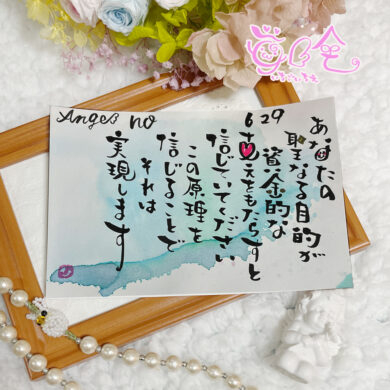 Angel no 629
あなたの
聖なる目的が
資金的な
支えをもたらすと
信じていてください
この原理を
信じることで
それは
実現します